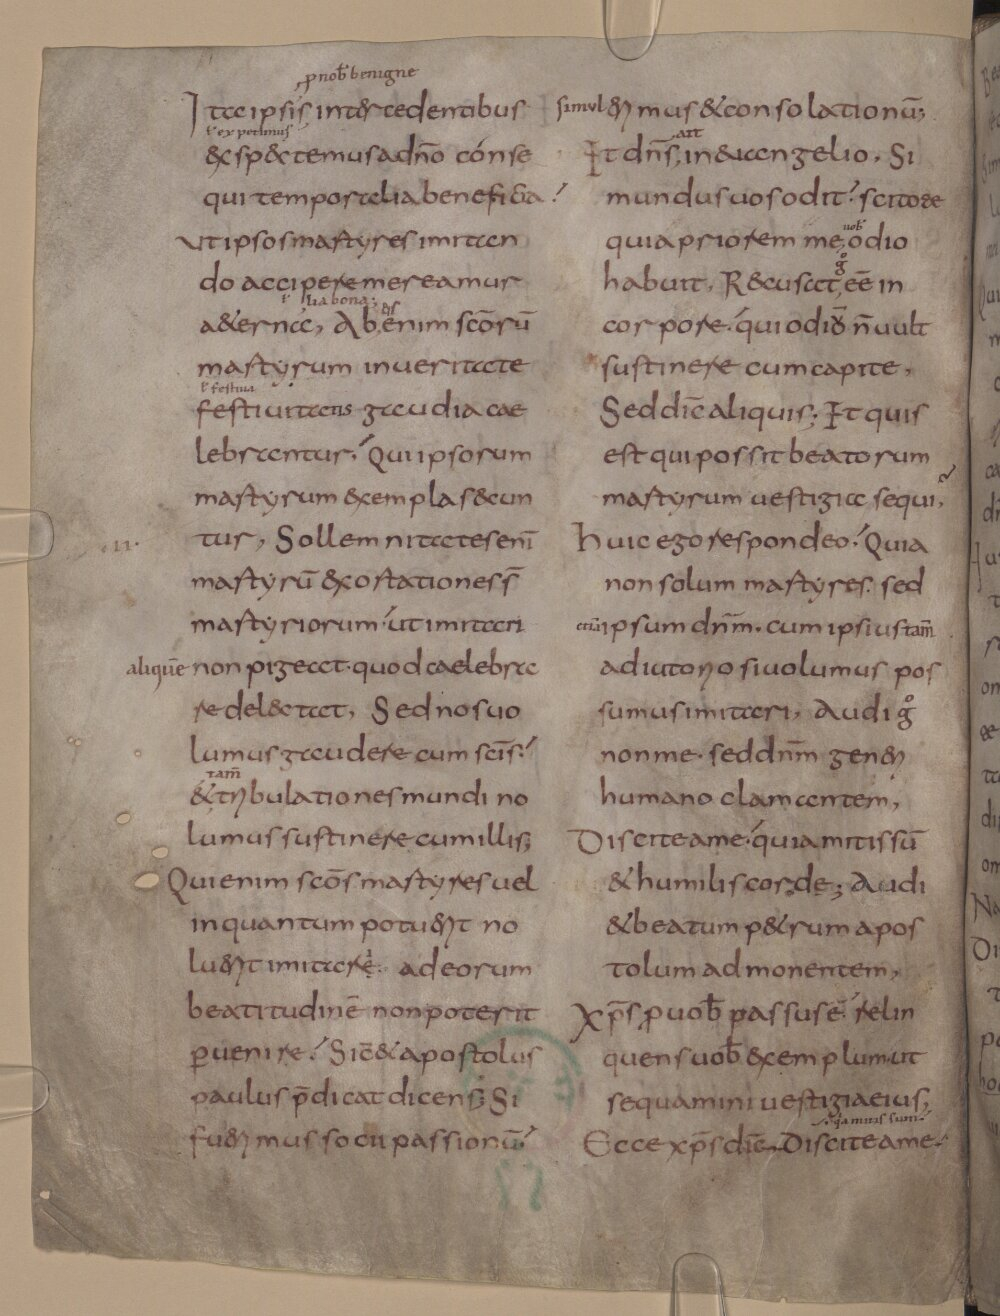 p̱ nob̄ benigne
Ita ipsis, intercedentibus
ł expetimus
& sp&temus ad dn̄o cónse
qui temporalia beneficia!
ut ipsos martyres imitan
do accipere mereamur
ł lia bona;
a&erna, Ab enim scōrū
martyrum in veritate
ł festiua
festiuitatis gaudia cae
lebrantur, Qui ipsorum
martyrum exempla secun
tur, Sollemnitates enī
martyrū exortationes s̄
martyriorum, ut imitari
aliquē non pigeat quod caelebra
re del&tat, Sed nos uo
lumus gaudere cum scīs!
tam̄
& tribulationes mundi no
lumus sustinere cum illis;
Qui enim scōs martyres uel
in quantum potuerit no
luerit imitare, ad eorum
beatitudinē non poterit
ꝑuenire! Sic̄ & apostolus
paulus p̄dicat dicens; Si
fuerimus socii passionū!
simul erimus & consolationū;
ait
It dn̄s, in euangelio, Si
mundus uos odit! scitote
uob̄
quia priorem me, odio
g̊
habuit, Recusat, eē in
corpore, qui odiū n̄ uult
sustinere cum capite,
Sed dic̄ aliquis; Et quis
est qui possit beatorum
martyrum uestigia sequi,
huic ego respondeo! Quia
non solum martyres sed
etiā ipsum dn̄m. cum ipsius tam̄
adiutorio si uolumus pos
sumus imitari, Audi g̊
non me. sed dn̄m generi
humano clamantem,
Discite a me, quia mitis sū
& humilis corde; Audi
& beatum p&rum apos
tolum admonentem,
Xp̄s p̱ uob̄ passus ē, relin
quens uob̄ exemplum ut
sequamini uestigia eius;
q̇a mitis sum
Ecce xp̄s dic̄, Discite a me